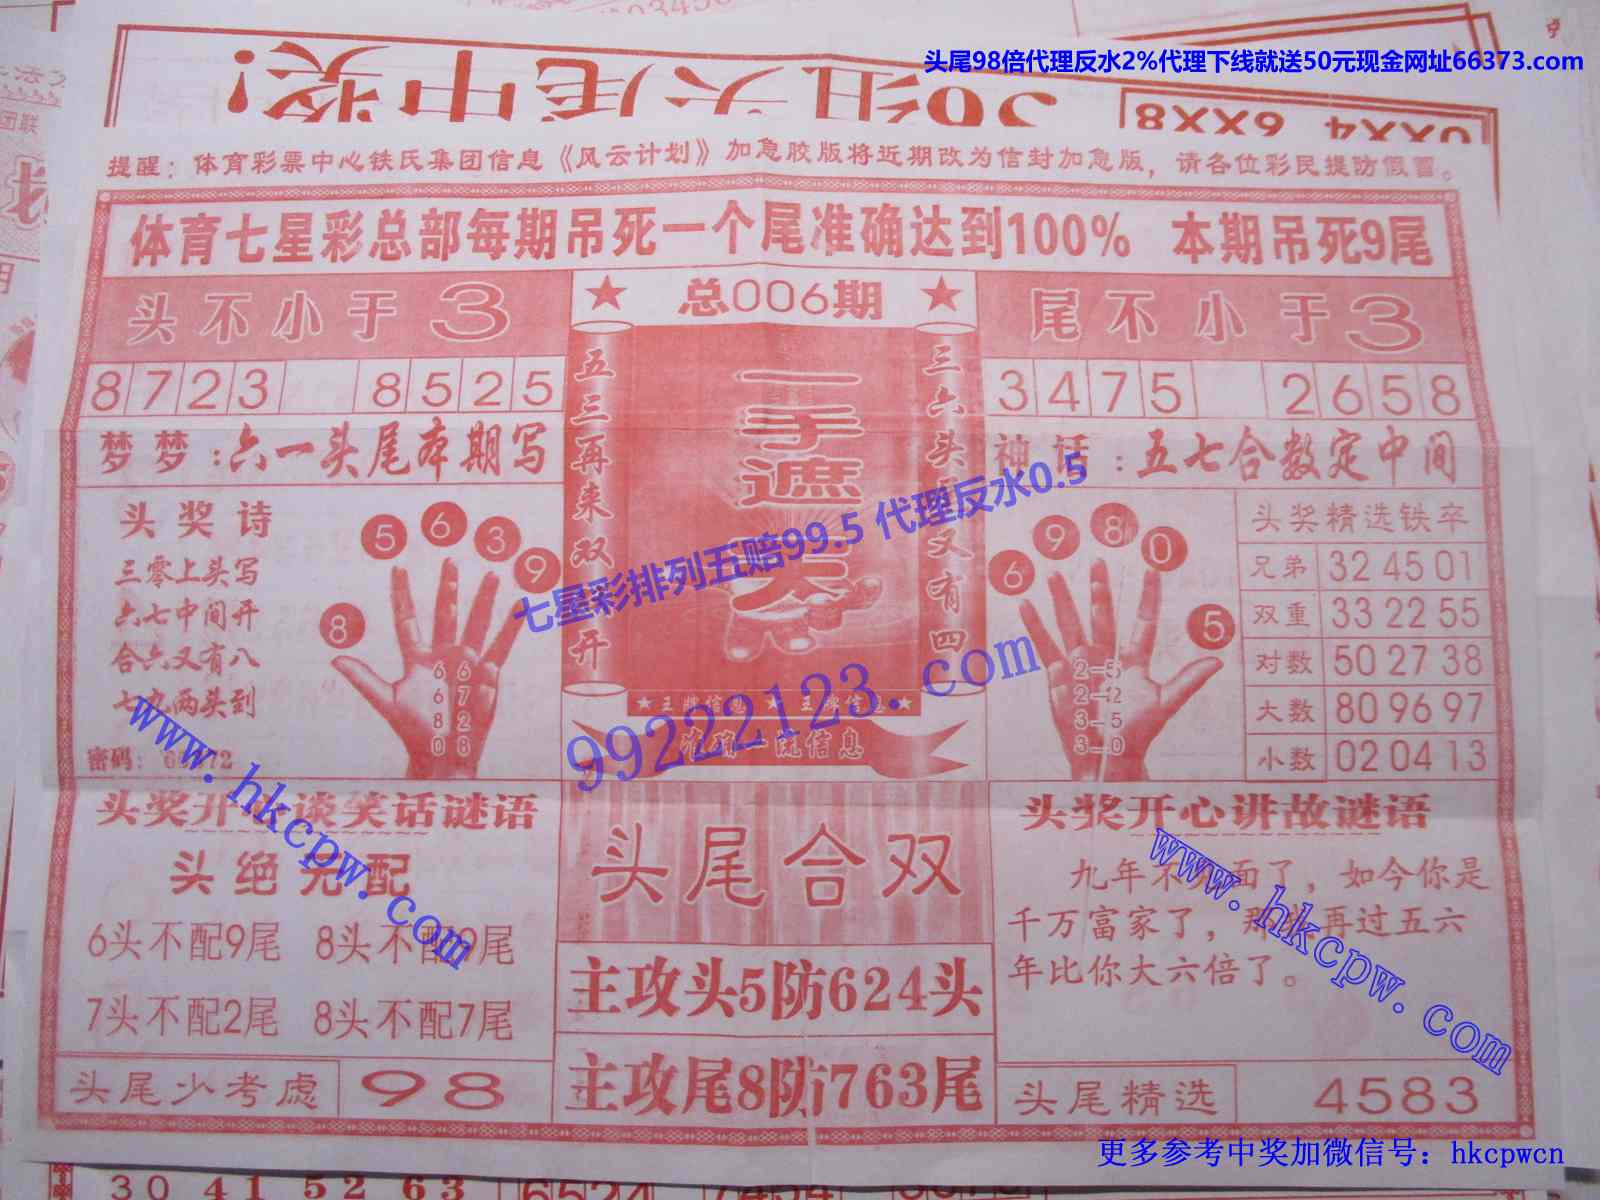 头尾98倍代理反水2%代理下线就送50元现金网址66373.com
0XX4 6XX8
提醒：体育彩票中心铁氏集团信息《风云计划》加急胶版将近期改为信封加急版，请各位彩民提防假冒。
体育七星彩总部每期吊死一个尾准确达到100% 本期吊死9尾
头不小于3
★ 总006期 ★
尾不小于3
8723 8525
3475 2658
梦梦：六一头尾本期写
神话：五七合数定中间
五三再来双开
一手遮天
三六头 又有四
头奖诗
三零上头写
六七中间开
合六又有八
七九两头到
密码：
8 5 6 3 9
6 6
6 7
8 2
0 8
6 9 8 0 5
2-5
2-12
3-5
3-0
头奖精选铁卒
兄弟 32 45 01
双重 33 22 55
对数 50 27 38
大数 80 96 97
小数 02 04 13
★王牌信息★王牌信息★
准确一流信息
七星彩排列五赔99.5 代理反水0.5
99222123.com
www.hkcpw.com
头奖开心谈笑话谜语
头绝无配
6头不配9尾 8头不配9尾
7头不配2尾 8头不配7尾
头尾少考虑 98
头尾合双
主攻头5防624头
主攻尾8防763尾
头奖开心讲故谜语
九年不见面了，如今你是
千万富家了，再过五六
年比你大六倍了。
www.hkcpw.com
头尾精选 4583
更多参考中奖加微信号：hkcpwcn
30 41 52 63